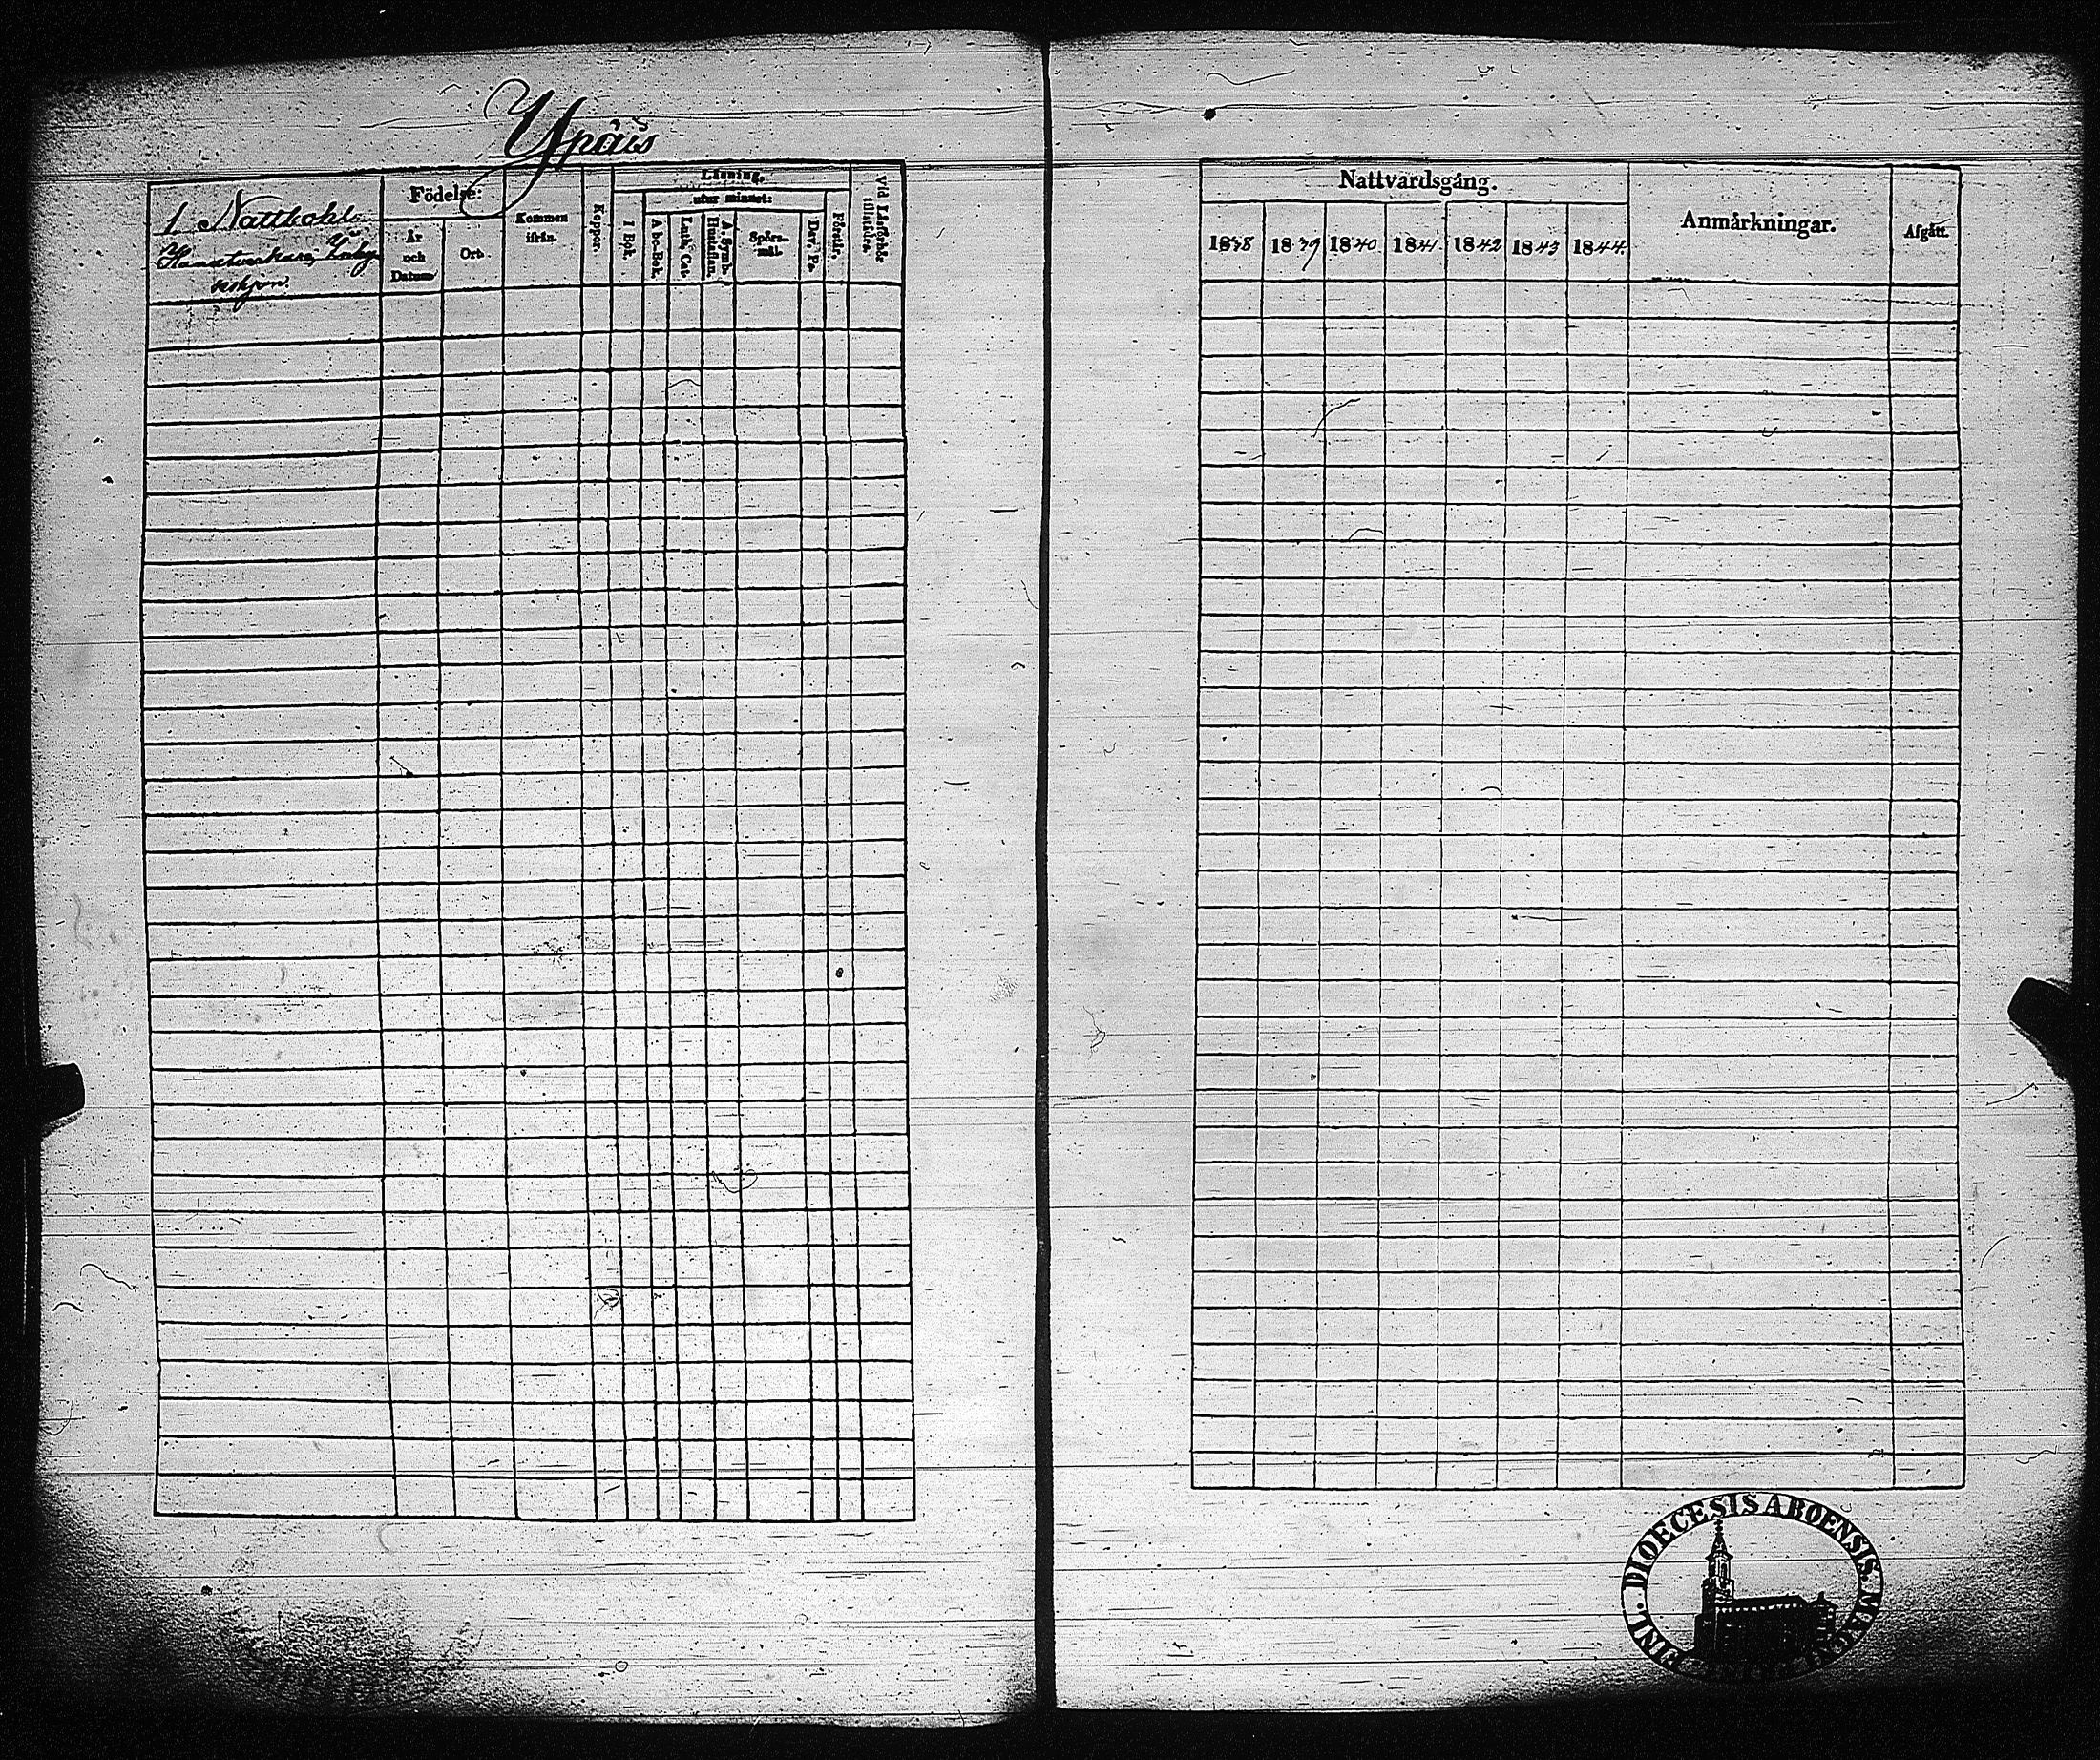 Ypäis
1 Nattkahls
Födelse:
År
och
Datum
Ort.
Kommen
ifrån.
Koppor.
Läsning,
utur minnet:
I Bok.
A bc-Bok.
Luth. Cat.
Hustaflan.
A. Symb.
Spörs-
mål.
Dav. Ps.
Förstår.
Vid Läsförhör
tillstädes.
Nattvardsgång.
1838 1839 1840 1841 1842 1843 1844.
Anmärkningar.
Afgått.
FINL. DIOECESIS ABOENSIS. MAGNI